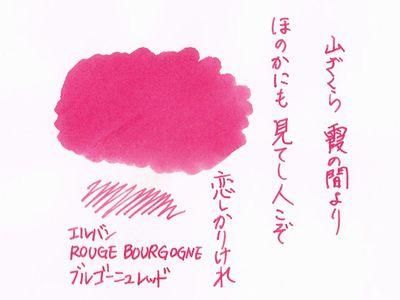 山ざくら 霞の間より
ほのかにも 見てし人こそ
恋しかりけれ
エルバン
ROUGE BOURGOGNE
ブルゴーニュ レッド